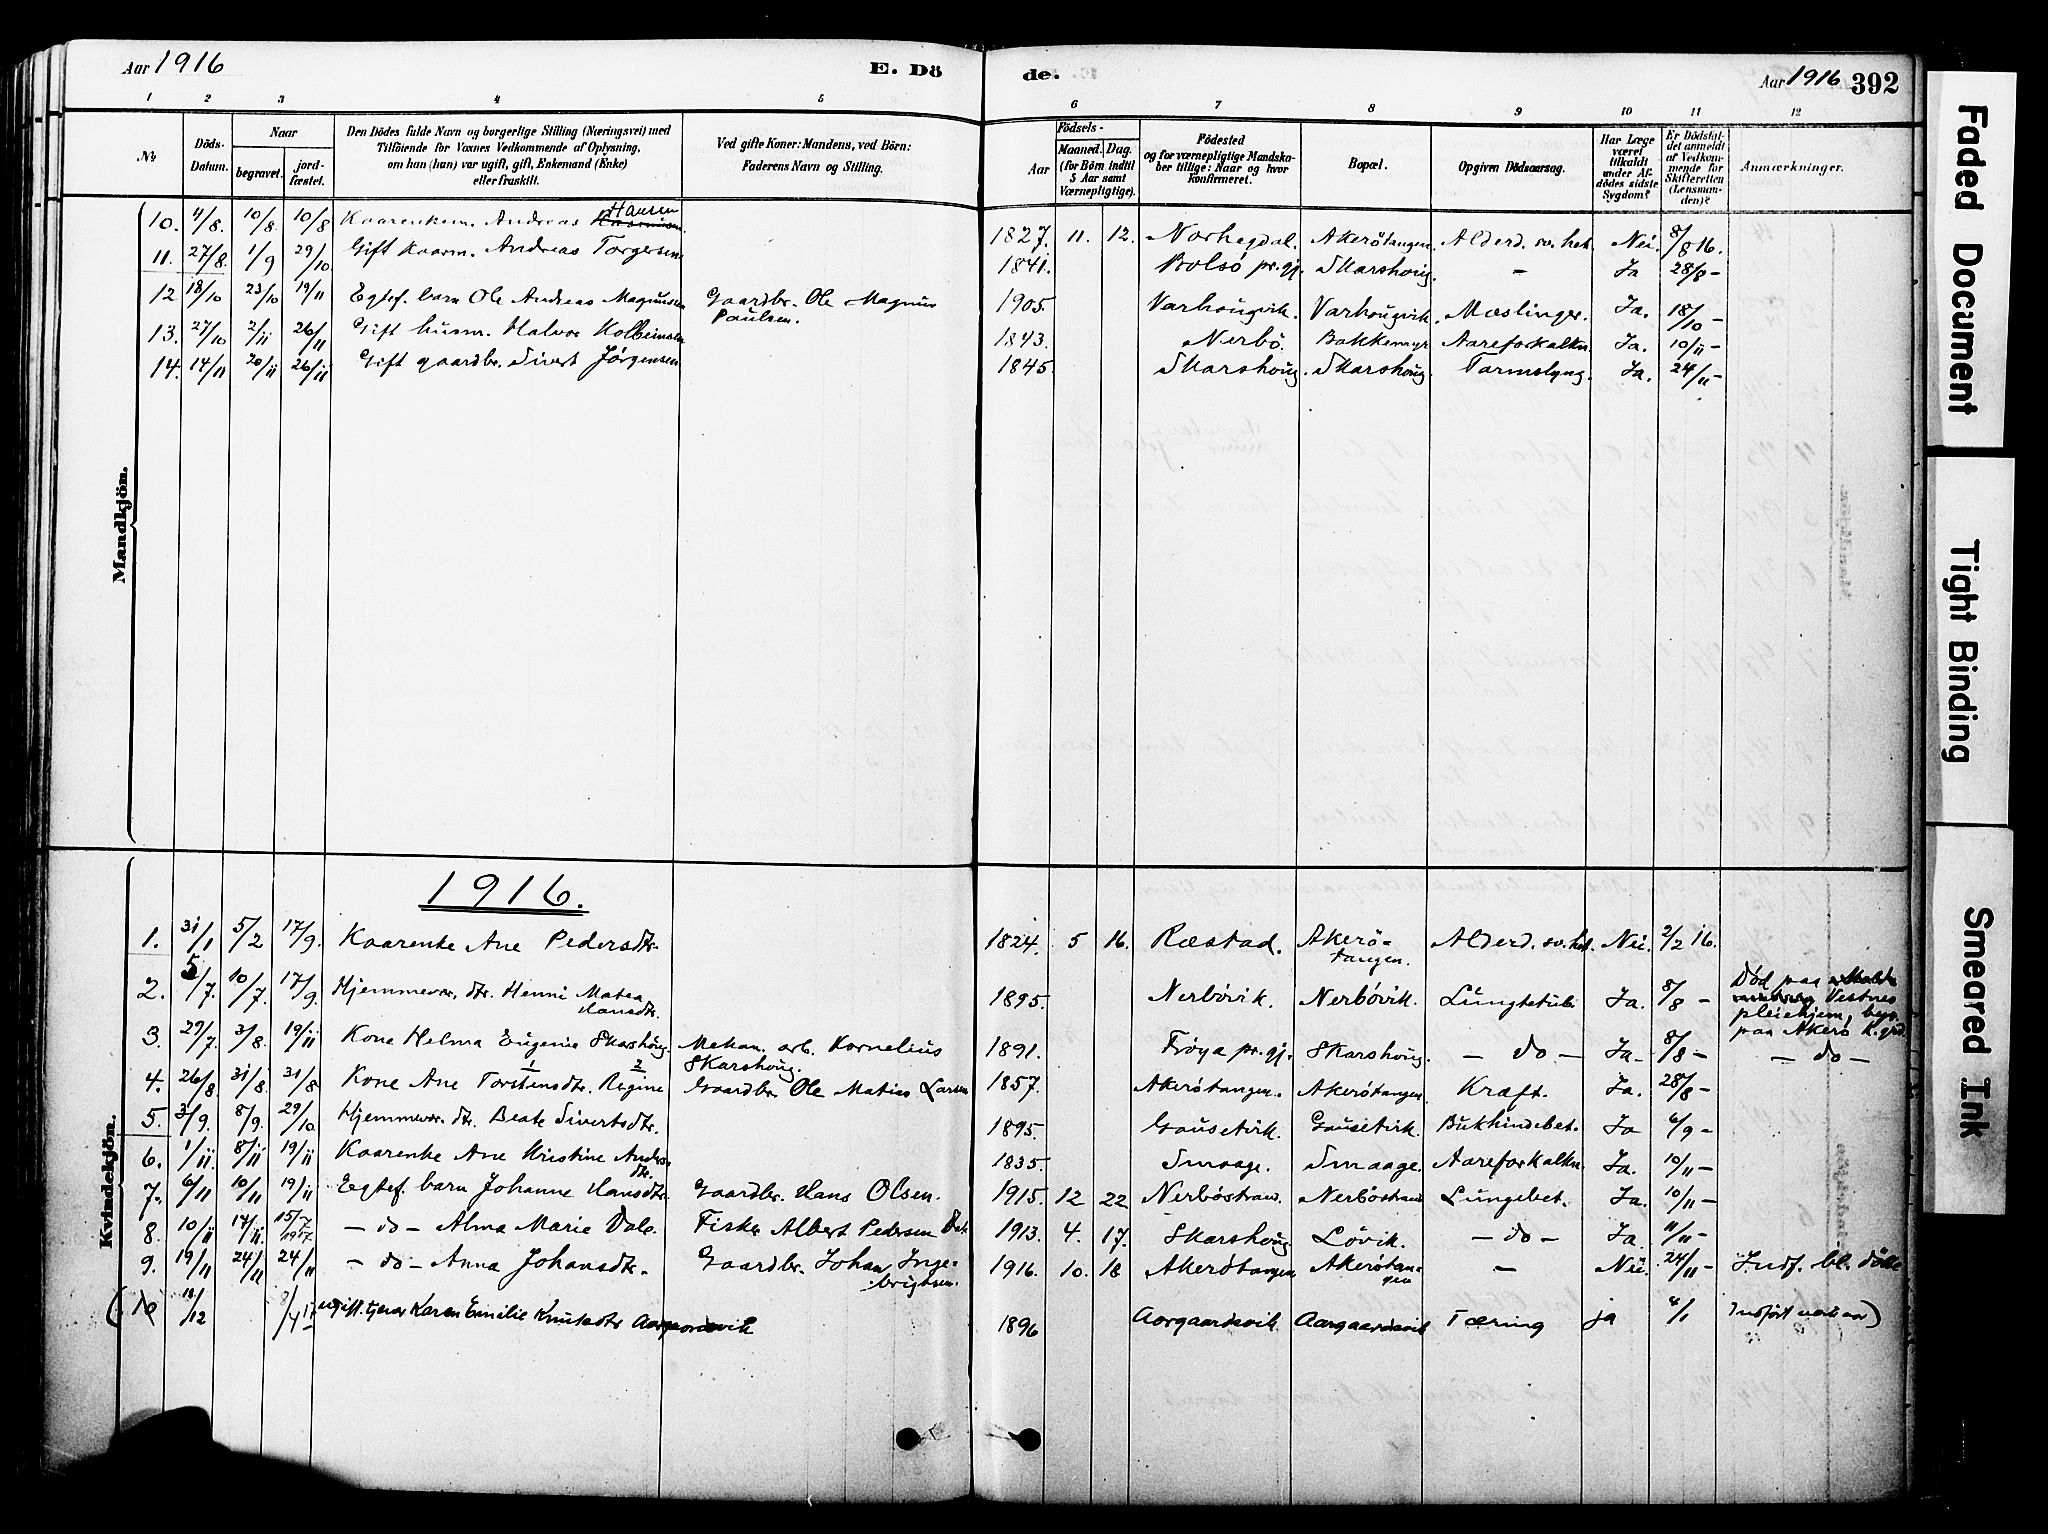 Aar 1916
E. Dö
de.
Aar 1916 392
1 2 3 4 5 6 7 8 9 10 11 12
No
Döds-
Datum.
Naar
begravet.
jord-
fæstet.
Den Dödes fulde Navn og borgerlige Stilling (Næringsvei) med
Tilföiende for Voxnes Vedkommende af Oplysning,
om han (hun) var ugift, gift, Enkemand (Enke)
eller fraskilt.
Ved gifte Koner: Mandens, ved Börn:
Faderens Navn og Stilling.
Födsels-
Aar
Maaned. Dag.
(for Börn indtil
5 Aar samt
Værnepligtige).
Födested
og for værnepligtige Mandska-
ber tillige: Naar og hvor
konfirmeret.
Bopæl.
Opgiven Dödsaarsag.
Har Læge
været
tilkaldt
under Af-
dödes sidste
Sygdom?
Er Dödsfal-
det anmeldt
af Vedkom-
mende for
Skifteretten
(Lensman-
den)?
Anmærkninger.
Mandkjön.
10. 4/8. 10/8. 10/8 Kaarenkem. Andreas Hansen 1827. 11. 12. Norhegdal. Akerötangen. Alderd. sv.het. Nei. 8/8 16.
11. 27/8. 1/9 29/10. Gift kaarm. Andreas Torgersen. 1841. Bolsö pr.gj. Skarshoug. - Ja 28/8 -
12 18/10 23/10 19/11 Egtef. barn Ole Andreas Magnussen Gaardbr. Ole Magnus
Paulsen.
1905. Varhougvik. Varhougvik. Mæslinger. Ja. 18/10 -
13. 27/10 2/11 26/11 Gift husm. Halvor Kolbeinsen 1843. Nerbö. Bakkemyr Aareforkalkn. Ja. 10/11 -
14. 14/11 20/11 26/11 Gift gaardbr. Sivert Jörgensen 1845. Skarshoug. Skarshoug. Tarmslyng. Ja. 24/11 -
Kvindekjön.
1916.
1. 31/1 5/2 17/9. Kaarenke Ane Pedersdtr. 1824. 5 16. Ræstad. Akerö-
tangen. Alderd. sv.het. Nei. 2/2 16.
2. 5/7. 10/7. 17/9. Hjemmevær. dtr. Henni Matea
Hansdtr. 1895. Nerbövik. Nerbövik. Lungetub. Ja. 8/8 - Död paa Vestnes
pleiehjem, begr.
paa Akerö k.grd.
3. 29/7. 3/8. 19/11 Kone Helma Eugenie Skarshoug. Mekan. arb. Kornelius
Skarshoug. 1891. Fröya pr.gj. Skarshoug. - do - Ja. 8/8 - - do -
4. 26/8. 31/8. 31/8 Kone Ane Torstensdtr. Regine Gaardbr. Ole Matias Larsen 1857. Akerötangen. Akerötangen. Kræft. Ja. 28/8 -
5. 3/9. 8/9. 29/10 Hjemmevær. dtr. Beate Sivertsdtr. 1895. Gausetvik. Gausetvik. Bukhindebet. Ja 6/9 -
6. 1/11. 8/11 19/11 Kaarenke Ane Kristine Anders-
dtr. 1835. Smaage. Smaage. Aareforkalkn. Ja. 10/11 -
7. 6/11 10/11 19/11 Egtef. barn Johanne Hansdtr. Gaardbr. Hans Olsen. 1915. 12 22 Nerböstrand Nerböstrand Lungebet. Ja. 10/11 -
8. 10/11 14/11. 15/7 1917. - do - Alma Marie Dale. Fisker Albert Pedersen Dale 1913. 4. 17. Skarshoug Lövik. - do - Ja. 11/11 -
9. 19/11 24/11 24/11 - do - Anna Johansdtr. Gaardbr. Johan Inge-
brigtsen. 1916. 10. 18 Akerötangen Akerötan-
gen - Nei. 24/11 -
(10 12 17 ugift. tjener Karen Emilie Knutsdtr Aargaardsvik 1896 Aargaardsvik Aargaardsvik Tæring ja 4/1 Indfört)
Faded Document
Tight Binding
Smeared Ink